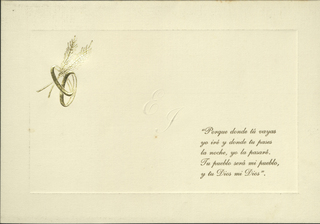 E
J
"Porque donde tú vayas
yo iré y donde tu pases
la noche, yo la pasaré.
Tu pueblo será mi pueblo,
y tu Dios mi Dios".